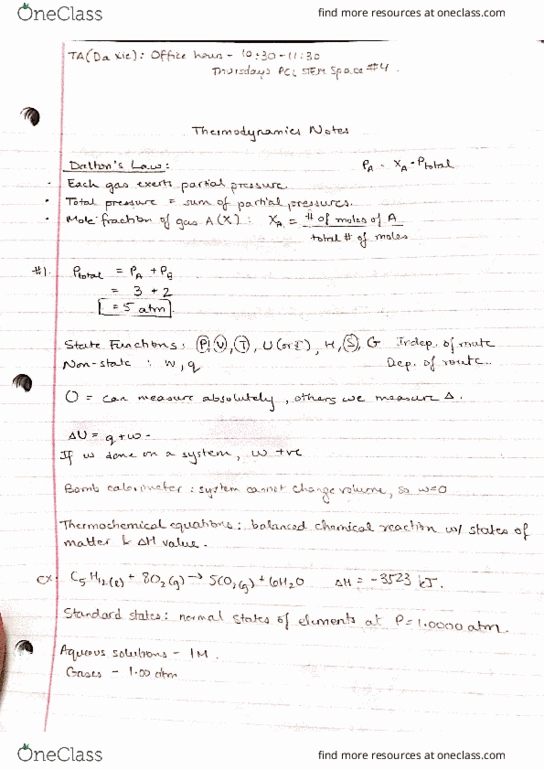 OneClass find more resources at oneclass.com
TA (Da Xie): Office hours - 10:30-11:30
Thursdays PCL STEM Space #4.
Thermodynamics Notes
Dalton's Law: PA = XA · Ptotal
· Each gas exerts partial pressure.
· Total pressure = sum of partial pressures.
· Mole fraction of gas A (X): XA = # of moles of A
total # of moles
#1. Ptotal = PA + PB
= 3 + 2
= 5 atm
State Functions: P, V, T, U (or E), H, S, G Indep. of route
Non-state : w, q Dep. of route..
O = can measure absolutely, others we measure Δ.
ΔU = q + w -
If w done on a system, w +ve
Bomb calorimeter: system cannot change volume, so w=0
Thermochemical equations: balanced chemical reaction w/ states of
matter & ΔH value.
ex. C5H12(l) + 8O2(g) → 5CO2(g) + 6H2O ΔH = -3523 kJ.
Standard states: normal states of elements at P = 1.0000 atm.
Aqueous solutions - 1M.
Gases - 1.00 atm
OneClass find more resources at oneclass.com